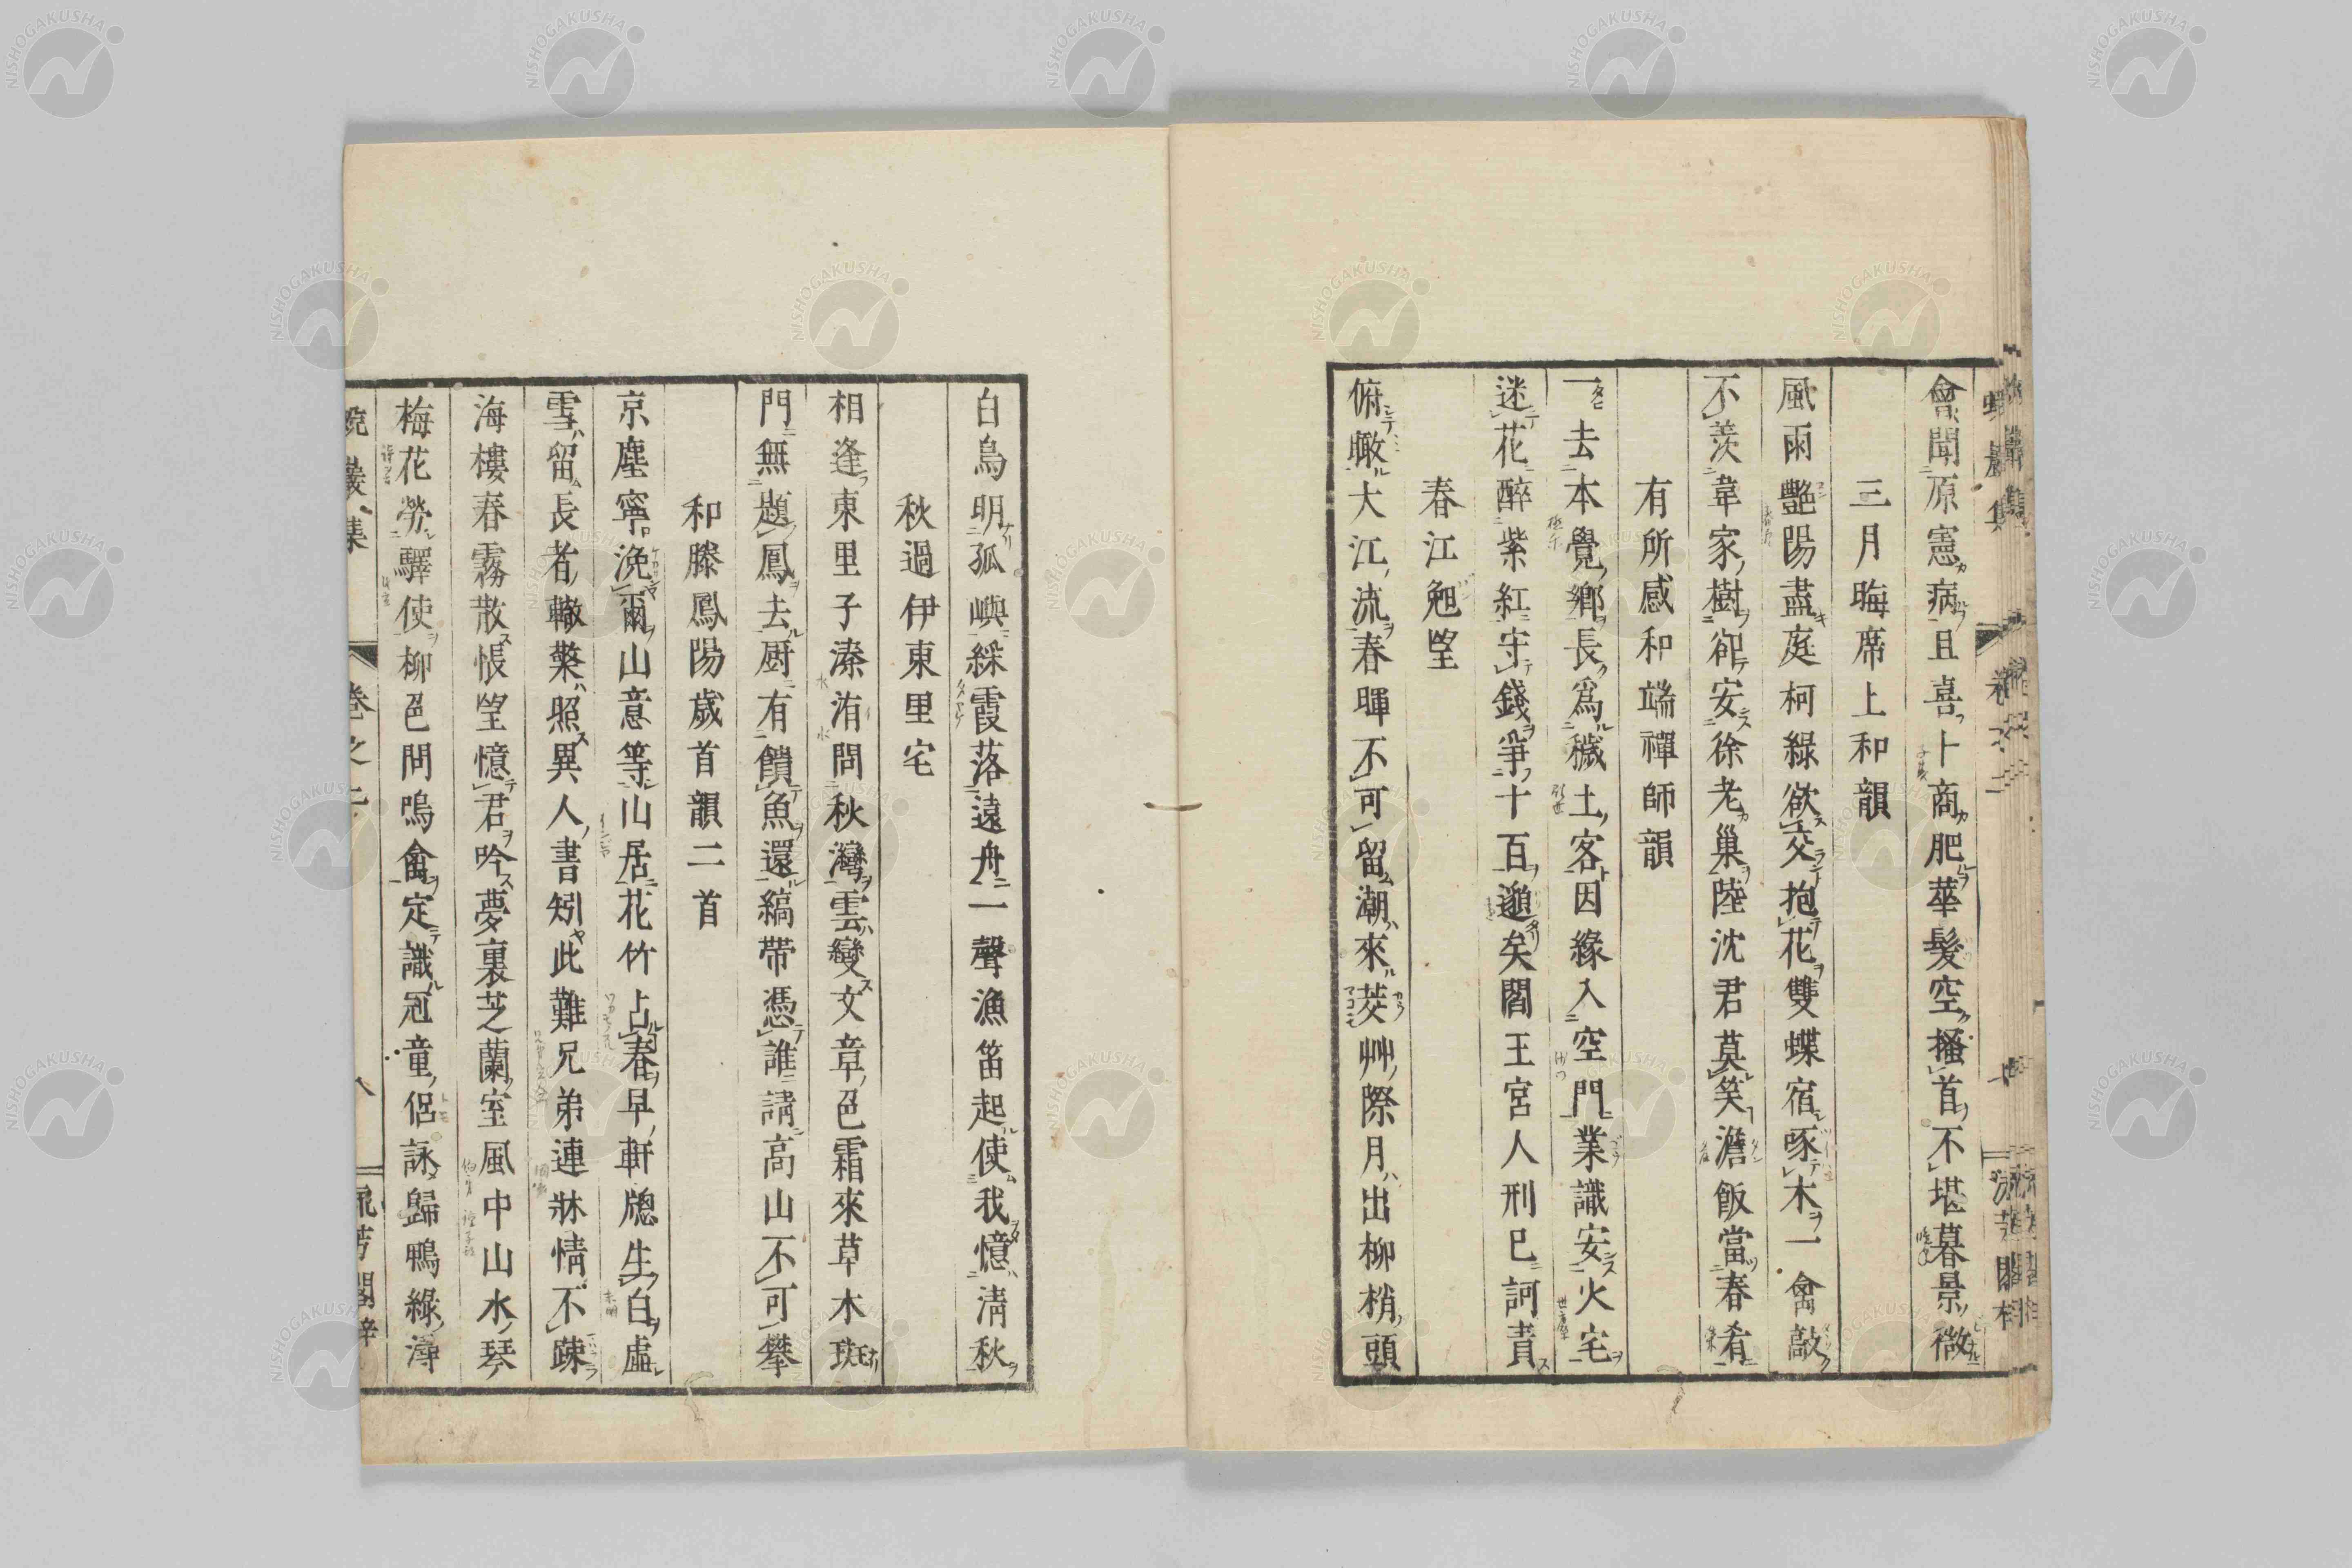 會聞原憲病且喜卜商肥華髮空搔首不堪暮景微
三月晦席上和韻
風雨艷陽盡庭柯綠欲交抱花雙蝶宿啄木一禽敲
不羨韋家樹卻安徐老巢陸沈君莫笑澹飯當春肴
有所感和端禪師韻
一去本覺鄉長爲穢土客因緣入空門業識安火宅
迷花醉紫紅守錢爭十百邈矣閻王宮人刑巳訶責
春江晚望
俯瞰大江流春暉不可留潮來茭艸際月出柳梢頭
白鳥明孤嶼綵霞落遠舟一聲漁笛起使我憶淸秋
秋過伊東里宅
相逢東里子溱洧問秋灣雲變文章色霜來草木斑
門無題鳳去厨有饋魚還縞帶憑誰請高山不可攀
和滕鳳陽歲首韻二首
京塵寧浼爾山意等山居花竹占春早軒牕生白虛
雪留長者轍藜照異人書矧此難兄弟連牀情不疎
海樓春霧散悵望憶君吟夢裏芝蘭室風中山水琴
梅花勞驛使柳色問鳴禽定識冠童侶詠歸鴨綠潯
蛻巖集
卷之二
八
流芳閣梓
NISHOGAKUSHA